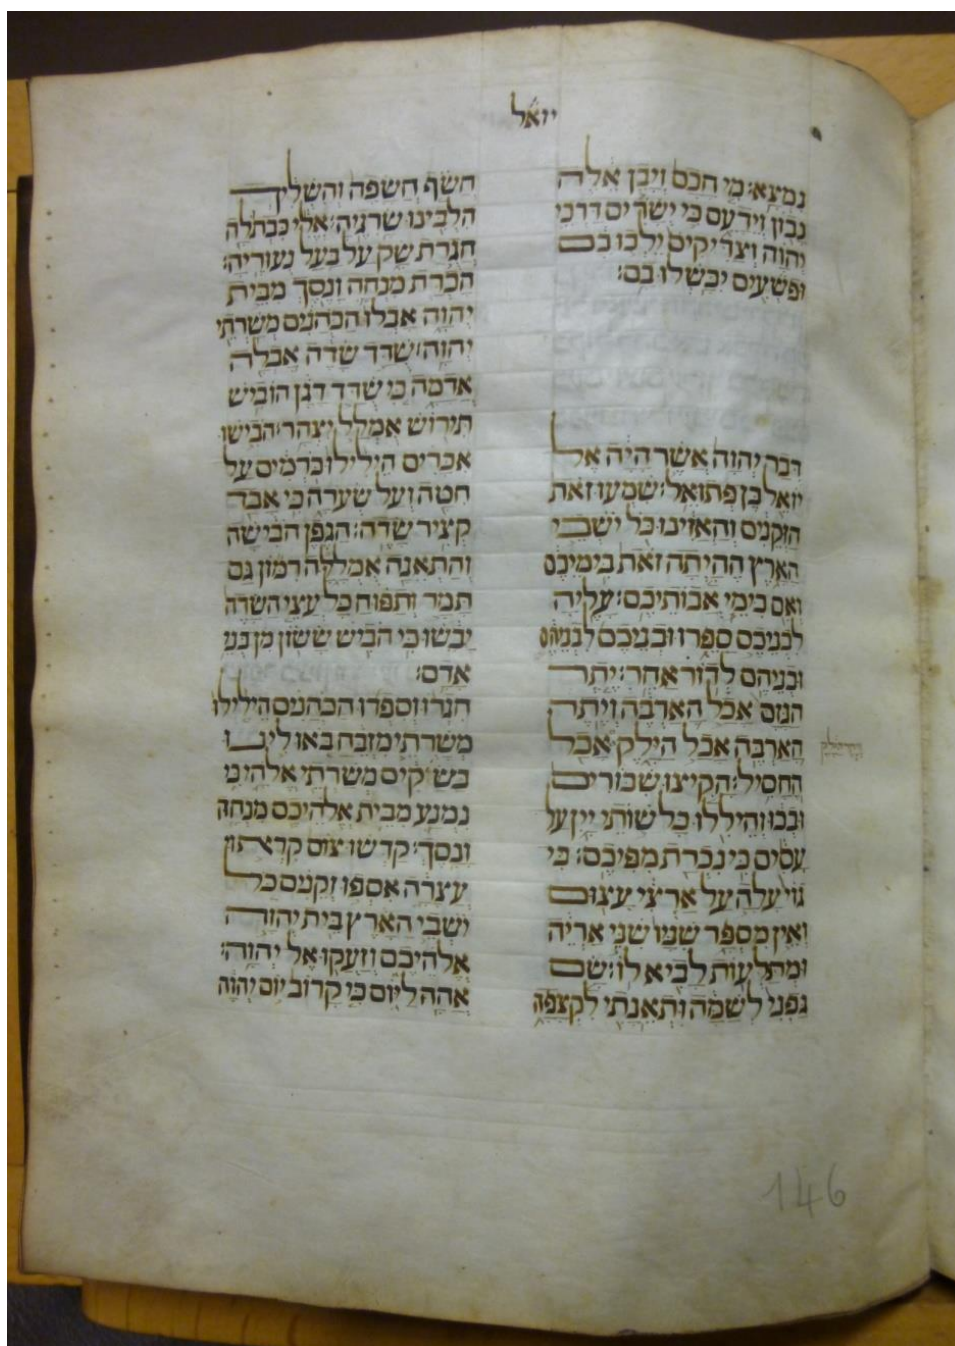 יואל
נמצא׃ מי חכם ויבן אלה
נבון וידעם כי ישרים דרכי
יהוה וצדיקים ילכו בם
ופשעים יכשלו בם׃
דבר יהוה אשר היה אל
יואל בן פתואל׃ שמעו זאת
הזקנים והאזינו כל ישבי
הארץ ההיתה זאת בימיכם
ואם בימי אבותיכם׃ עליה
לבניכם ספרו ובניכם לבניהם
ובניהם לדור אחר׃ יתר
הגזם אכל הארבה ויתר
הארבה אכל הילק אכל
ויתר הילק
החסיל׃ הקיצו שכורים
ובכו והיללו כל שותי יין על
עסיס כי נכרת מפיכם׃ כי
גוי עלה על ארצי עצום
ואין מספר שניו שני אריה
ומתלעות לביא לו׃ שם
גפני לשמה ותאנתי לקצפה
חשף חשפה והשליך
הלבינו שריגיה׃ אלי כבתלה
חגרת שק על בעל נעוריה׃
הכרת מנחה ונסך מבית
יהוה אבלו הכהנים משרתי
יהוה׃ שדד שדה אבלה
אדמה כי שדד דגן הוביש
תירוש אמלל יצהר׃ הבישו
אכרים הילילו כרמים על
חטה ועל שערה כי אבד
קציר שדה׃ הגפן הבישה
והתאנה אמללה רמון גם
תמר ותפוח כל עצי השדה
יבשו כי הביש ששון מן בני
אדם׃
חגרו וספדו הכהנים הילילו
משרתי מזבח באו לינו
בשקים משרתי אלהי כי
נמנע מבית אלהיכם מנחה
ונסך׃ קדשו צום קראו
עצרה אספו זקנים כל
ישבי הארץ בית יהוה
אלהיכם וזעקו אל יהוה׃
אהה ליום כי קרוב יום יהוה
146